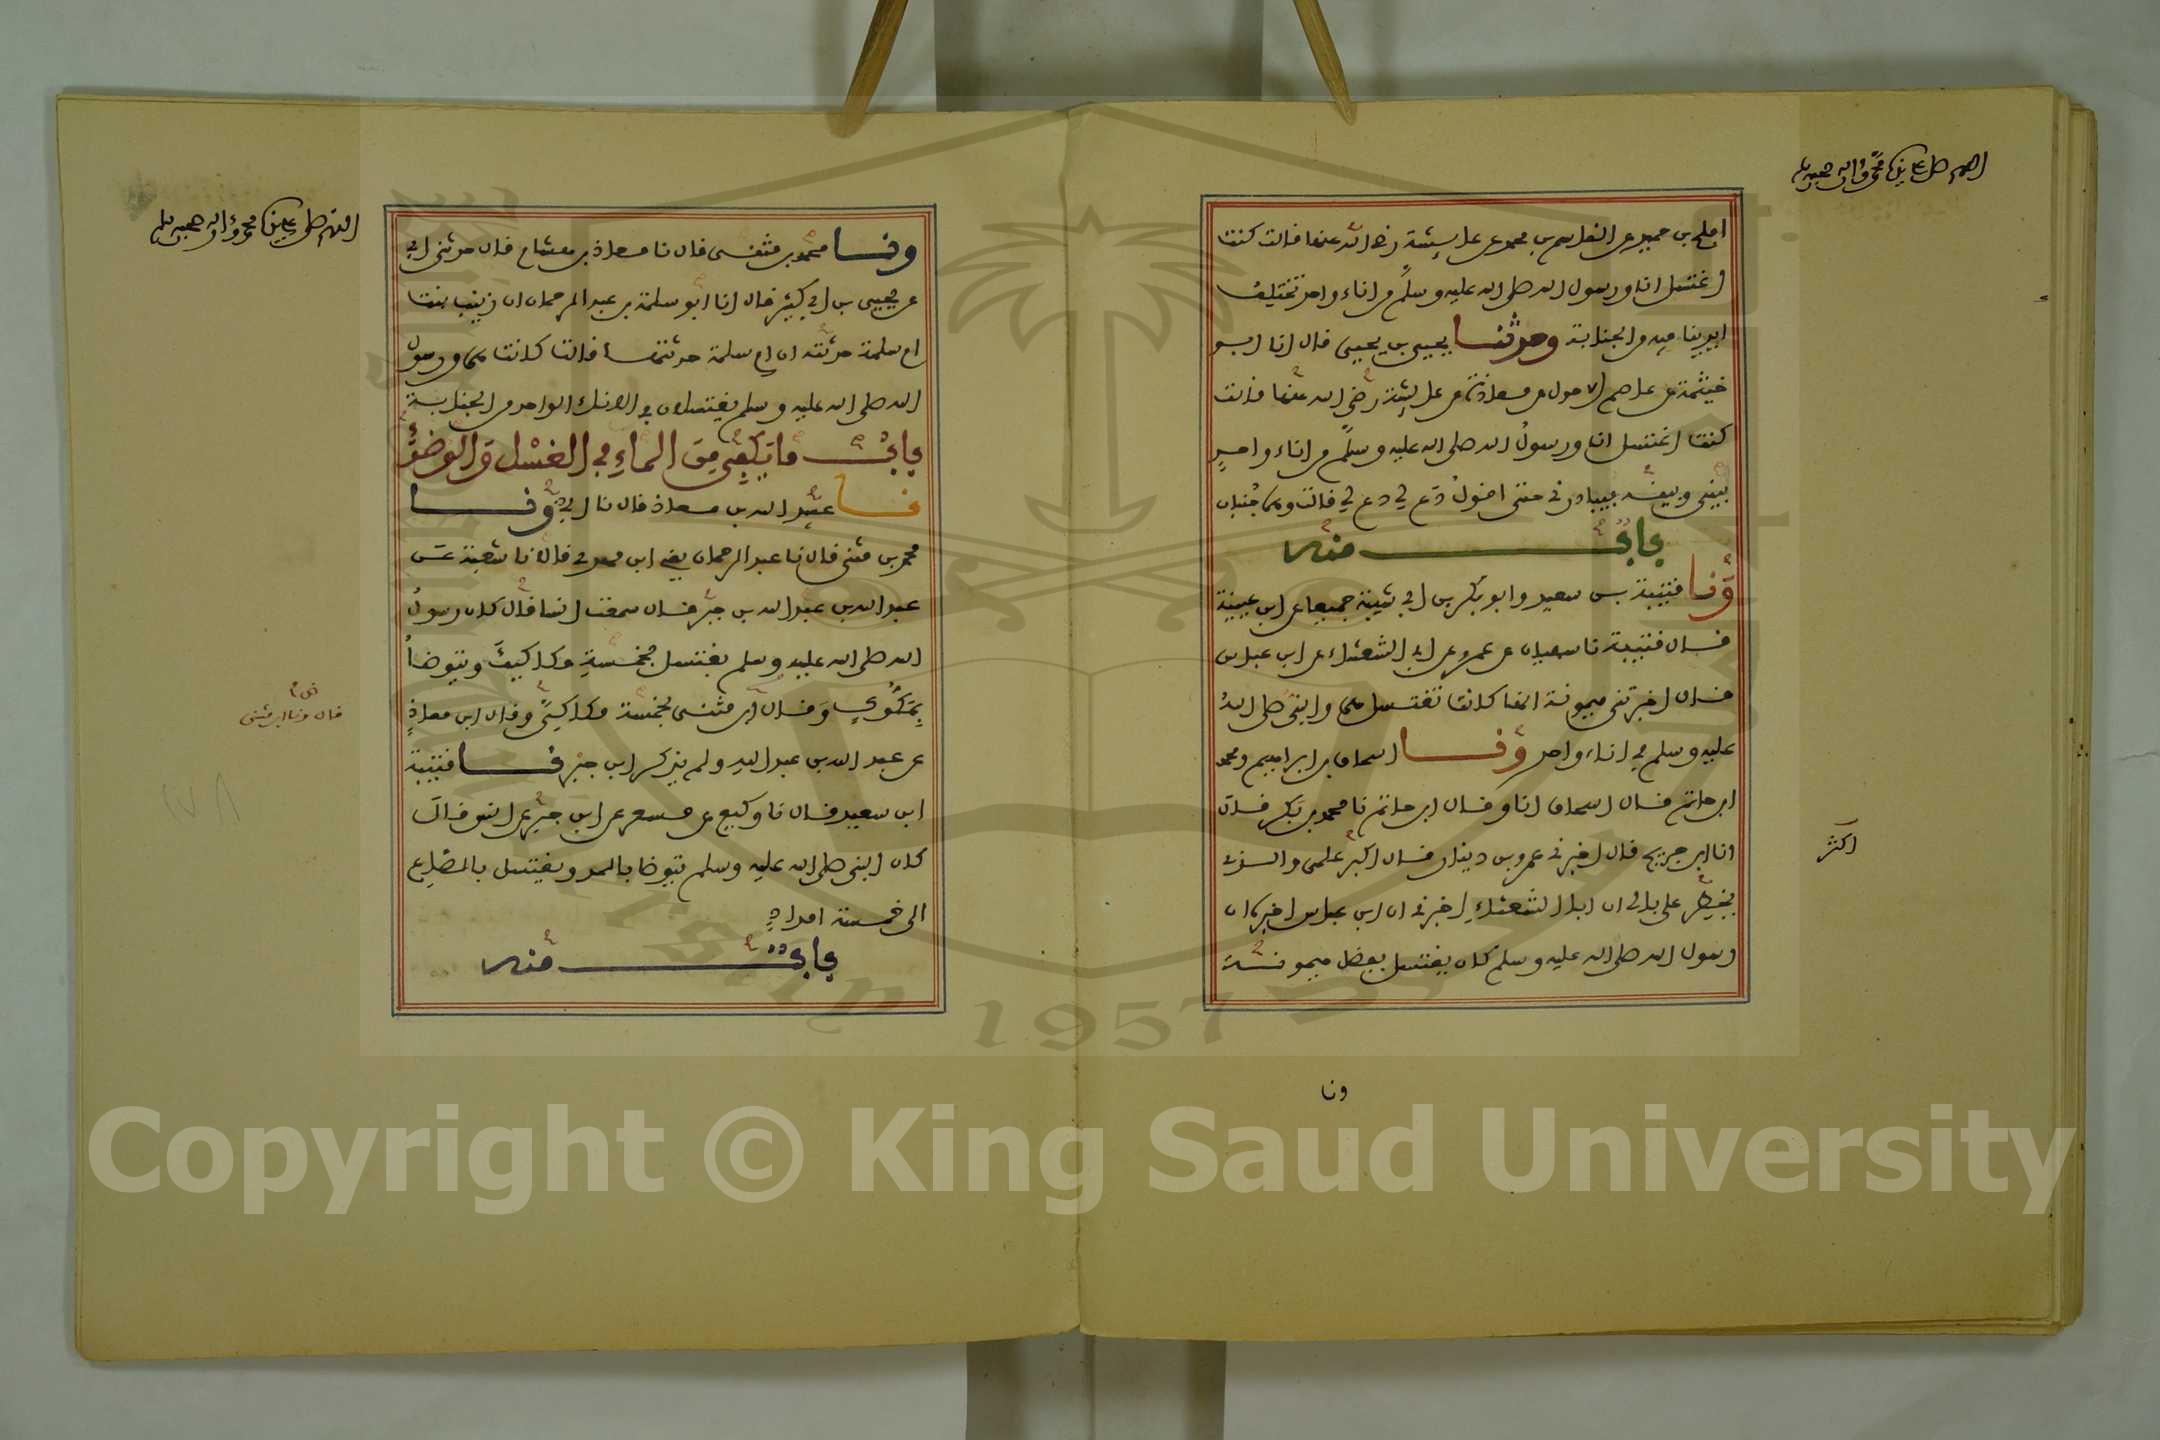 اللهم صل على سيدنا محمد وآله وصحبه وسلم
افلح بن حميد عن القاسم بن محمد عن عايشة رضي الله عنها قالت كنت
اغتسل انا ورسول الله صلى الله عليه وسلم من اناء واحد تختلف
ايدينا فيه من الجنابة وحدثنا يحيى بن يحيى قال انا ابو
خيثمة عن عاصم الاحول عن معاذة عن عايشة رضي الله عنها قالت
كنت اغتسل انا ورسول الله صلى الله عليه وسلم من اناء واحد
بيني وبينه فيبادرني حتى اقول دع لي دع لي قالت وهما جنبان
باب منه
ونا قتيبة بن سعيد وابو بكر بن ابي شيبة جميعا عن ابن عيينة
قال قتيبة نا سفيان عن عمرو عن ابي الشعثاء عن ابن عباس
قال اخبرتني ميمونة انها كانت تغتسل هي والنبي صلى الله
عليه وسلم في اناء واحد ونا اسحاق بن ابراهيم ومحمد
ابن حاتم قال اسحاق انا وقال ابن حاتم نا محمد بن بكر قال
انا ابن جريج قال اخبرني عمرو بن دينار قال اكبر علمي والذي
اكثر
يخطر على بالي ان ابا الشعثاء اخبرني ان ابن عباس اخبره ان
رسول الله صلى الله عليه وسلم كان يغتسل بفضل ميمونة
ونا
اللهم صل على سيدنا محمد وآله وصحبه وسلم
ونا محمد بن مثنى قال نا معاذ بن هشام قال حدثني ابي
عن يحيى بن ابي كثير قال انا ابو سلمة بن عبد الرحمان ان زينب بنت
ام سلمة حدثته ان ام سلمة حدثتها قالت كانت هي ورسول
الله صلى الله عليه وسلم يغتسلان في الاناء الواحد من الجنابة
باب ما يكفي من الماء في الغسل والوضوء
نا عبيد الله بن معاذ قال نا ابي ونا
محمد بن مثنى قال نا عبد الرحمان يعني ابن مهدي قالا نا شعبة عن
عبد الله بن عبد الله بن جبر قال سمعت انسا قال كان رسول
الله صلى الله عليه وسلم يغتسل بخمسة مكاكيك ويتوضأ
بمكوك وقال ابن مثنى بخمسة مكاكي وقال ابن معاذ
قال ونا ابن مثنى
عن عبد الله بن عبد الله ولم يذكر ابن جبر نا قتيبة
ابن سعيد قال نا وكيع عن مسعر عن ابن جبر عن انس قال
كان النبي صلى الله عليه وسلم يتوضا بالمد ويغتسل بالصاع
الى خمسة امداد
باب منه